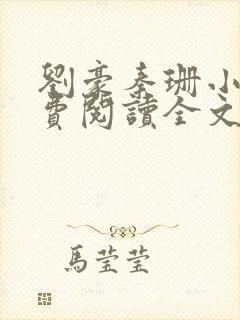 劉豪秦珊小
費閱讀全文
馬莹莹